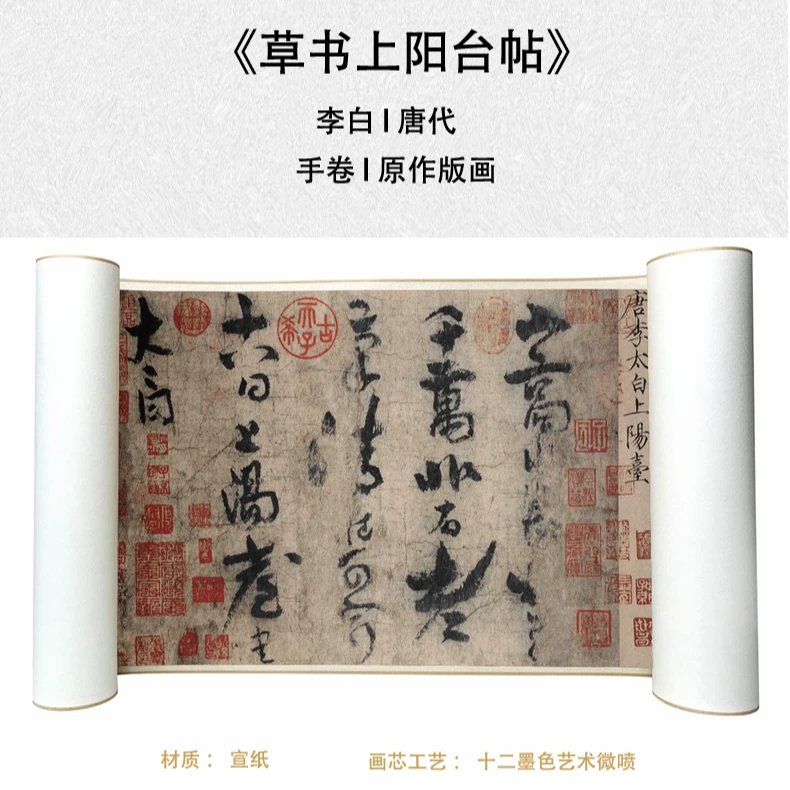 《草书上阳台帖》
李白 | 唐代
手卷 | 原作版画
唐李太白上陽臺
山高水長物象
千萬非有老
筆清壯可窮
十八日上陽臺書
太白
古希天子
材质： 宣纸
画芯工艺： 十二墨色艺术微喷